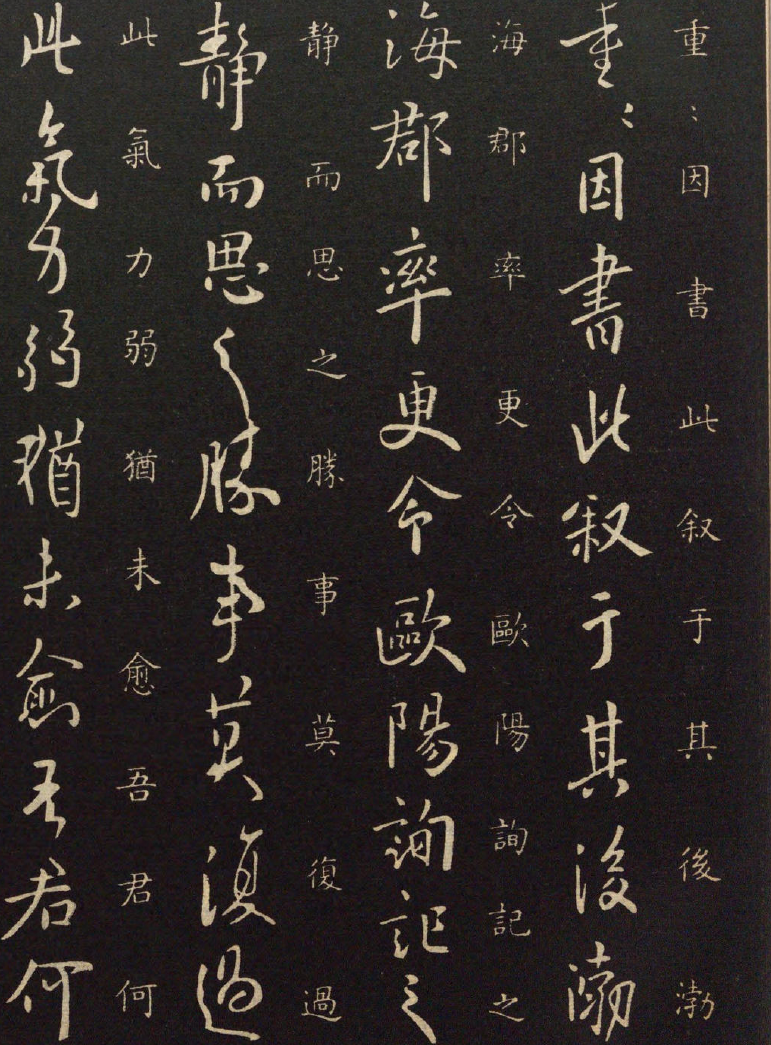 重〻因書此叙于其後渤
重〻因書此叙于其後渤
海郡率更令歐陽詢記之
海郡率更令歐陽詢記之
静而思之勝事莫復過
静而思之勝事莫復過
此氣力弱猶未愈吾君何
此氣力弱猶未愈吾君何